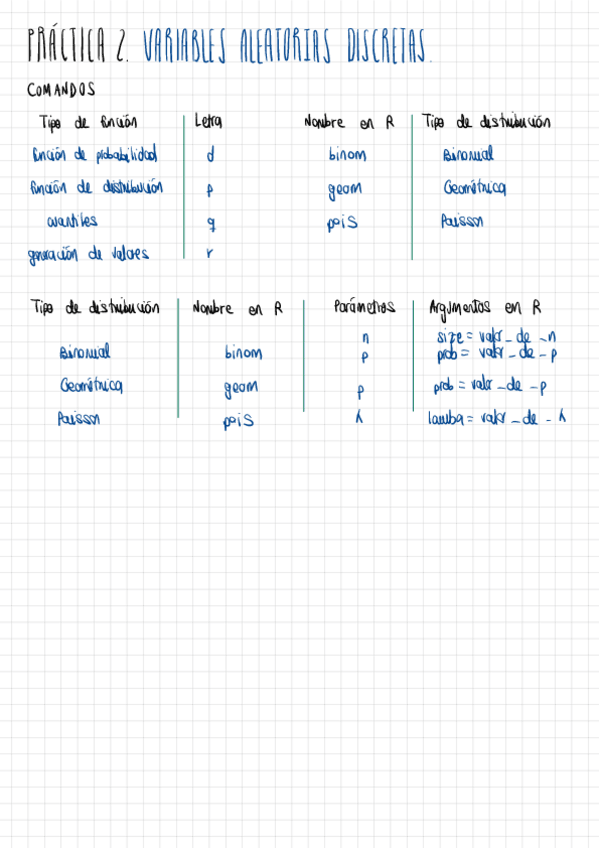 PRÁCTICA 2. VARIABLES ALEATORIAS DISCRETAS.
COMANDOS
Tipo de función Letra Nombre en R Tipo de distribución
función de probabilidad d binom Binomial
función de distribución p geom Geométrica
cuantiles q pois Poisson
generación de valores r
Tipo de distribución Nombre en R Parámetros Argumentos en R
n size = valor_de_n
Binomial binom p prob = valor_de_p
Geométrica geom p prob = valor_de_p
Poisson pois λ lamba = valor_de_λ